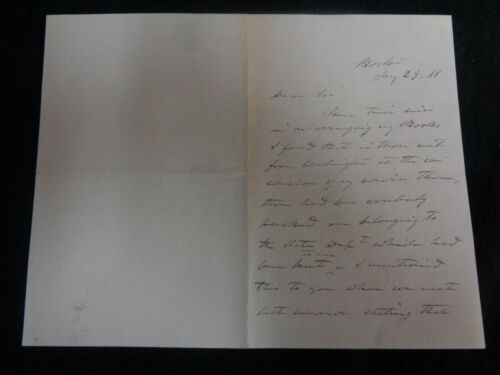 Boston
Jany 29. 88
Dear Sir
Some time since
in re-arranging my Books
I found that in those sent
from Washington at the con-
clusion of my service there,
there had been carelessly
packed one belonging to
the State Dept which had
been lent to me. I mentioned
this to you when we met
last summer stating that